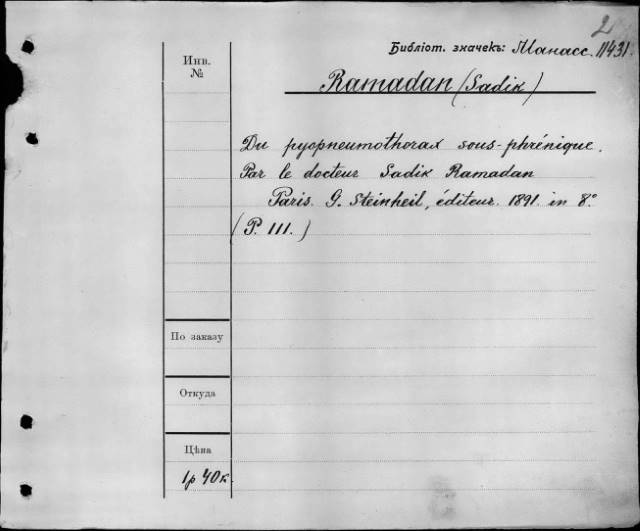 2
Библіот. значекъ: Манасс. 11431.
Инв.
№
Ramadan (Sadik)
Du pyopneumothorax sous-phrénique.
Par le docteur Sadik Ramadan
Paris. G. Steinheil, éditeur. 1891. in 8.°
(P. 111.)
По заказу
Откуда
Цѣна
1р 40к.